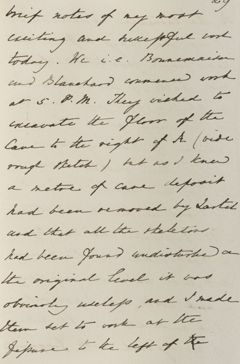 29
brief notes of my most
exciting and successful work
today. We i.e. Bonnemaison
and Blanchard commenced work
at 5. P.M. They wished to
excavate the floor of the
Cave to the right of A (vide
rough sketch) but as I knew
a metre of cave deposit
had been removed by Lartet
and that all the skeletons
had been found undisturbed on
the original level it was
obviously useless and I made
them set to work at the
fissure to the left of the